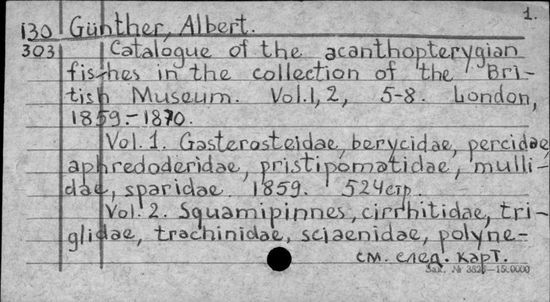 1.
130 Günther, Albert.
303 Catalogue of the acanthopterygian
fishes in the collection of the Bri-
tish Museum. Vol.1, 2, 5-8. London,
1859-1870.
Vol. 1. Gasterosteidae, berycidae, percidae,
aphredoderidae, pristipomatidae, mulli-
dae, sparidae. 1859. 524стр.
Vol. 2. Squamipinnes, cirrhitidae, tri-
glidae, trachinidae, sciaenidae, polyne-
см. след. карт.
Зак. №